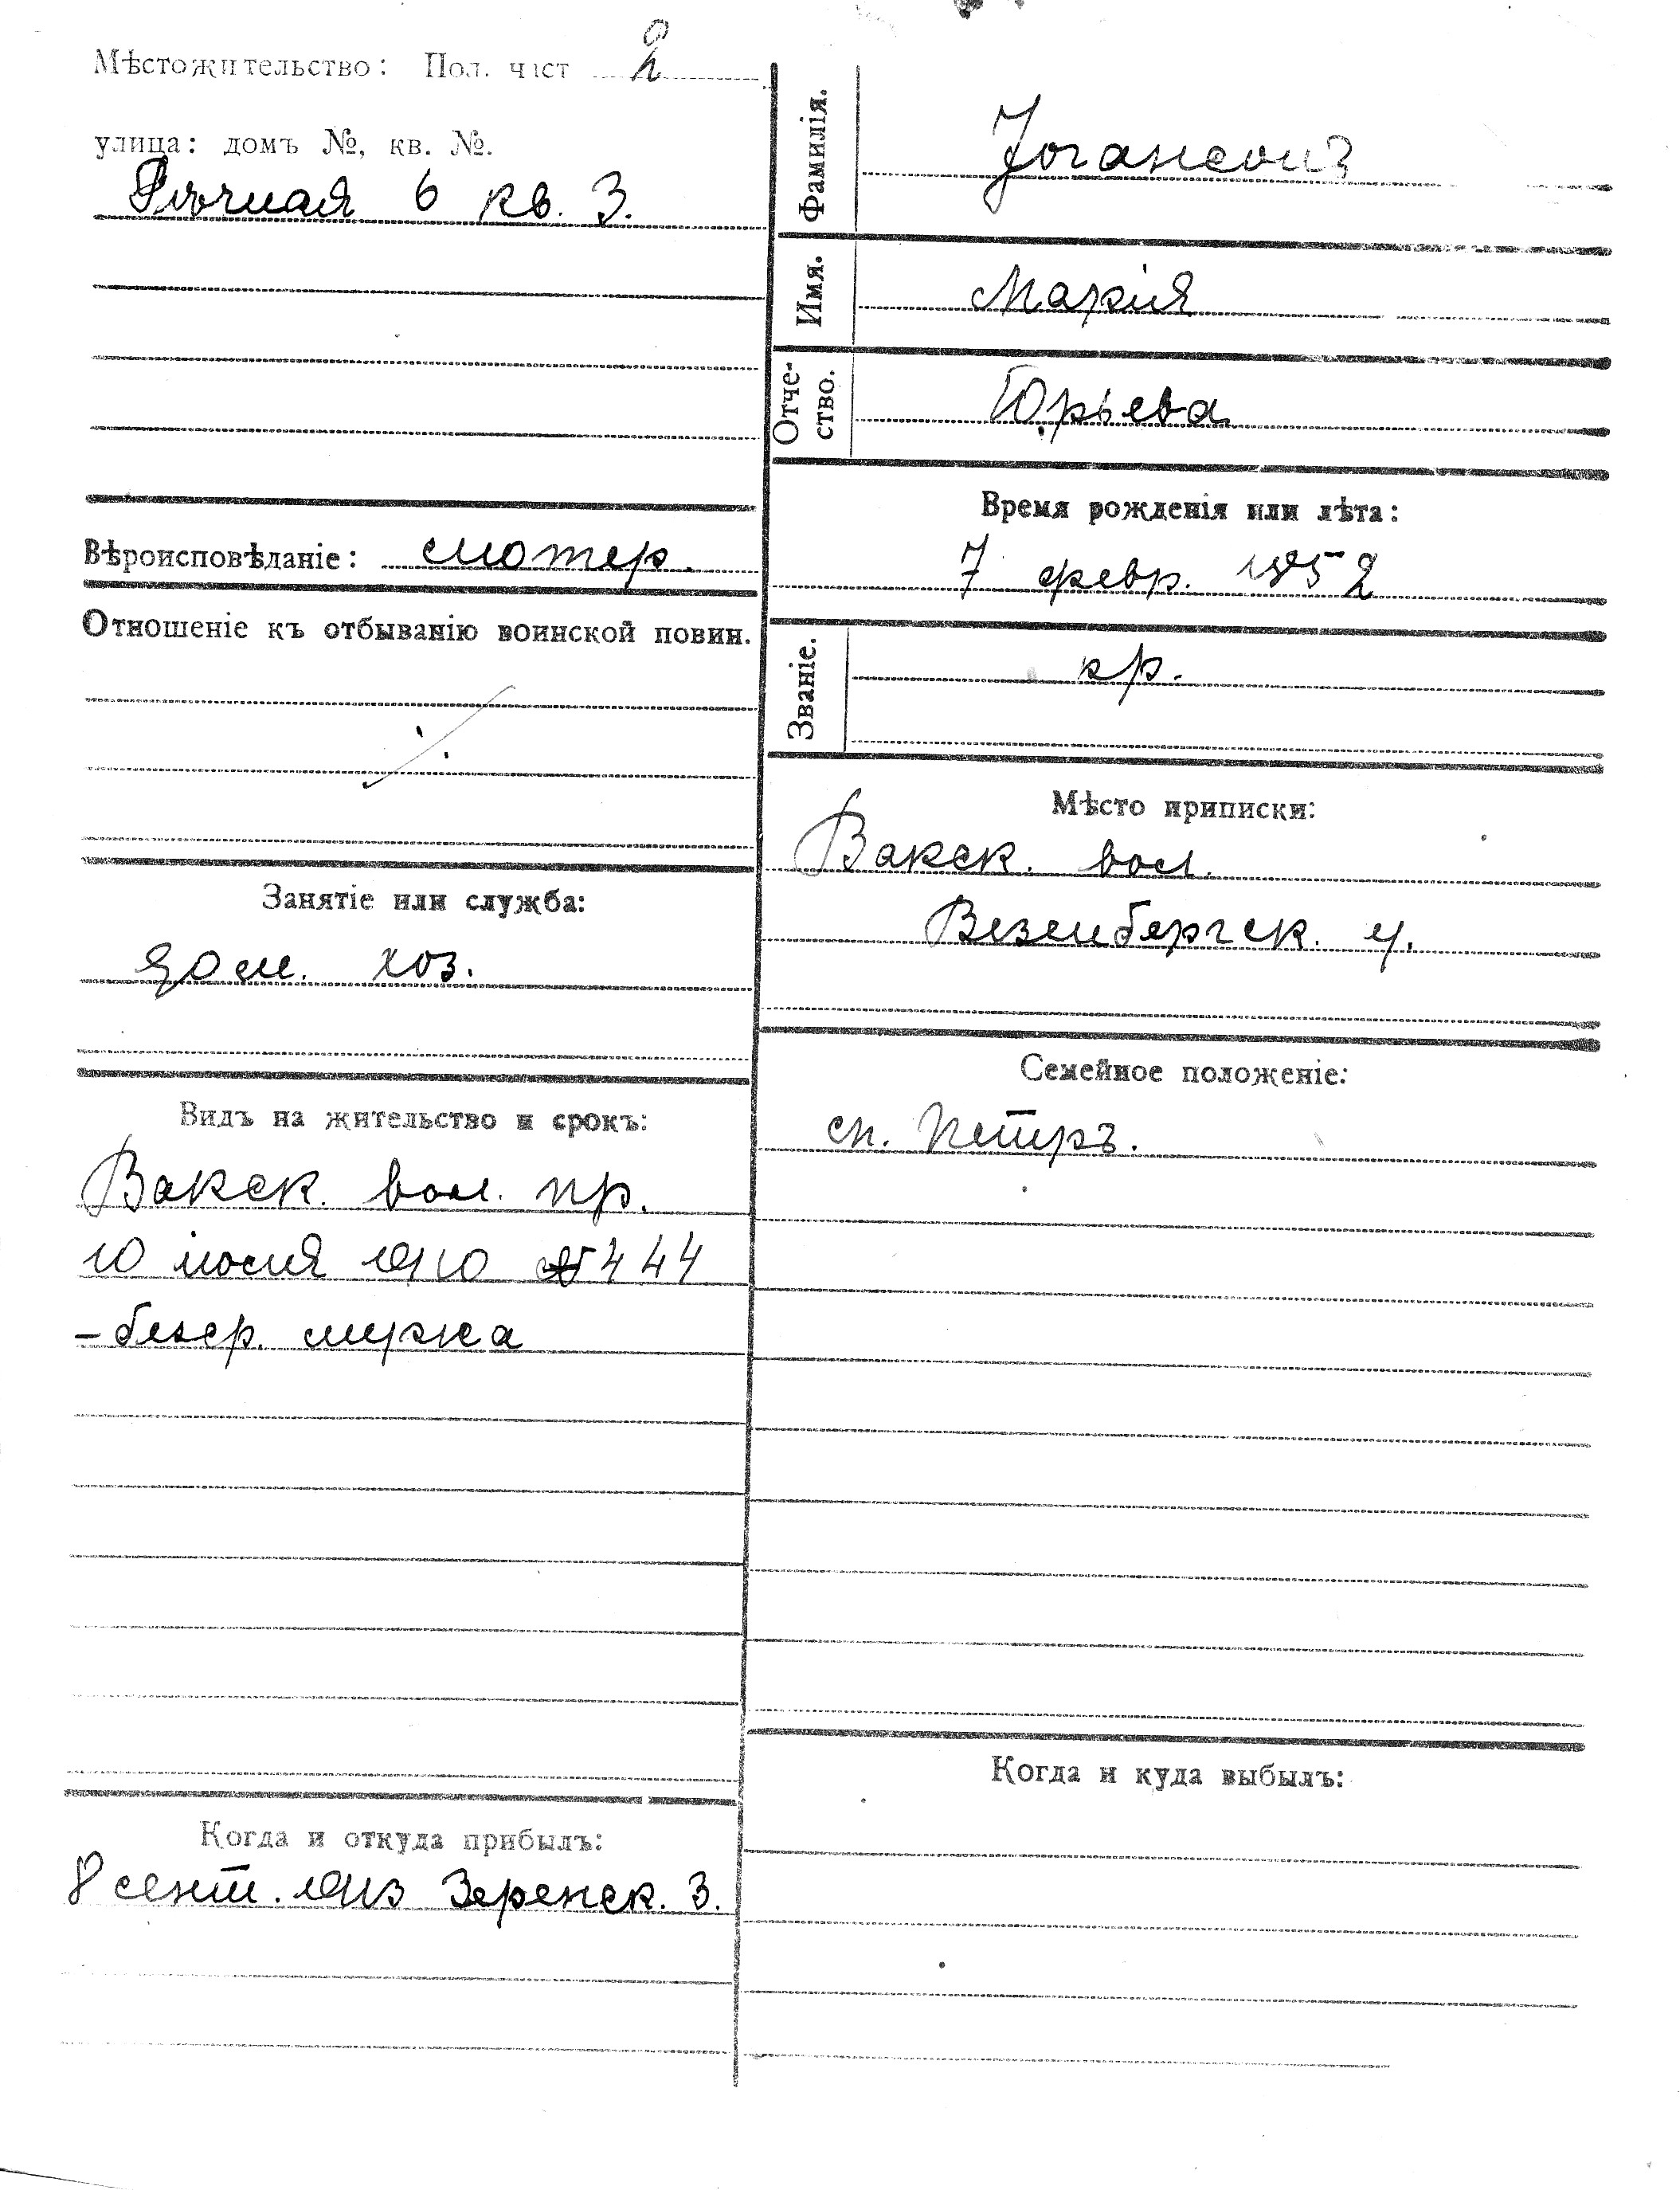 Мѣстожительство: Пол. част 2
улица: домъ №, кв. №.
Рѣчная 6 кв. 3.
Вѣроисповѣданіе: лютер.
Отношеніе къ отбыванію воинской повин.
Занятіе или служба:
дом. хоз.
Видъ на жительство и срокъ:
Вакск. вол. пр.
10 іюля 1910 № 444
- безср. мужа
Когда и откуда прибылъ:
8 сент. 1913 Зеренск. 3.
Фамилія. Іогансонъ
Имя. Марія
Отчество. Юрьева
Время рожденія или лѣта:
7 февр. 1852
Званіе. кр.
Мѣсто приписки:
Вакск. вол.
Везенбергск. у.
Семейное положеніе:
сп. Петръ.
Когда и куда выбылъ: